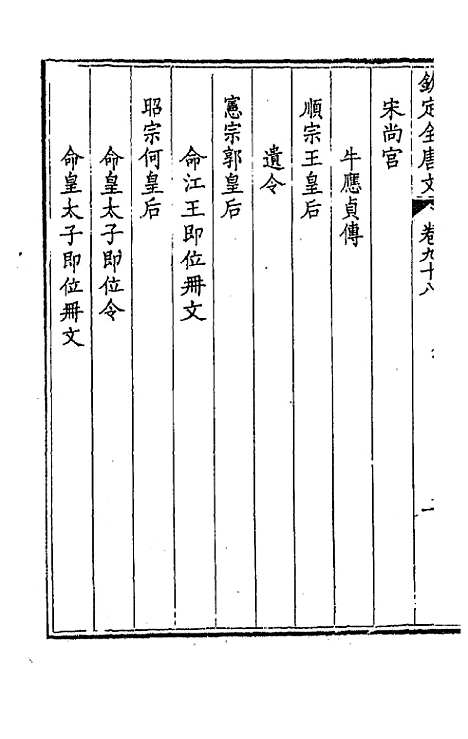 欽定全唐文 卷九十八 一
宋尚宮
牛應貞傳
順宗王皇后
遺令
憲宗郭皇后
命江王即位冊文
昭宗何皇后
命皇太子即位令
命皇太子即位冊文